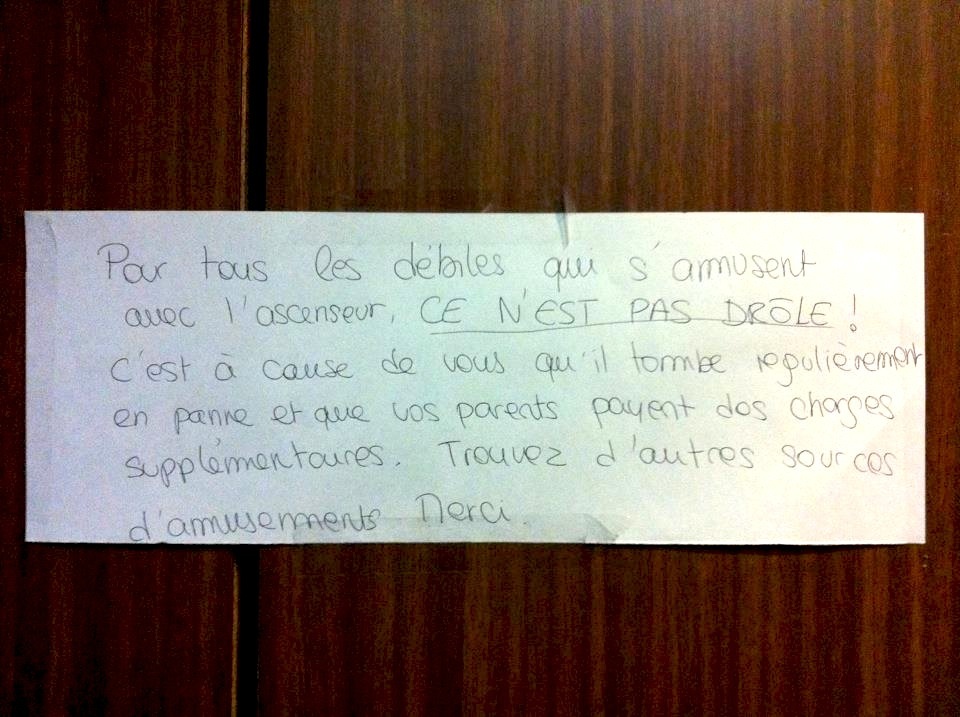 Pour tous les débiles qui s'amusent
avec l'ascenseur, CE N'EST PAS DRÔLE !
C'est à cause de vous qu'il tombe regulièrement
en panne et que vos parents payent des charges
supplémentaires. Trouvez d'autres sources
d'amusements Merci.